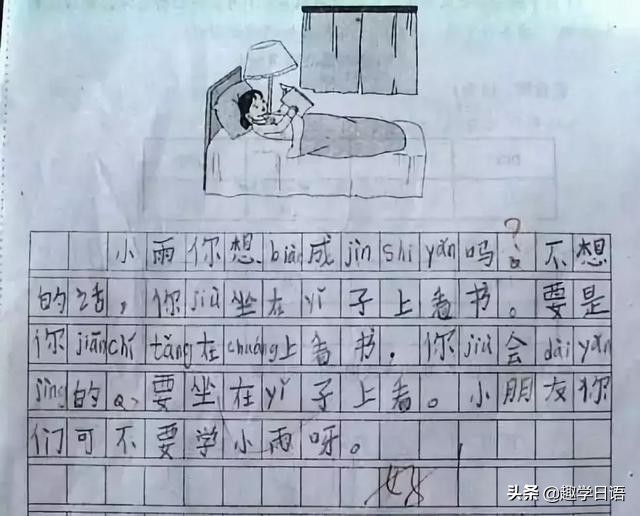 小雨你想biàn成jìn shi yǎn吗？不想
的话，你jiù坐在yǐ子上看书。要是
你jiān chí tǎng在chuáng上看书，你jiù会dài yǎn
jìng的。要坐在yǐ子上看。小朋友你
们可不要学小雨呀。
好
头条 @趣学日语